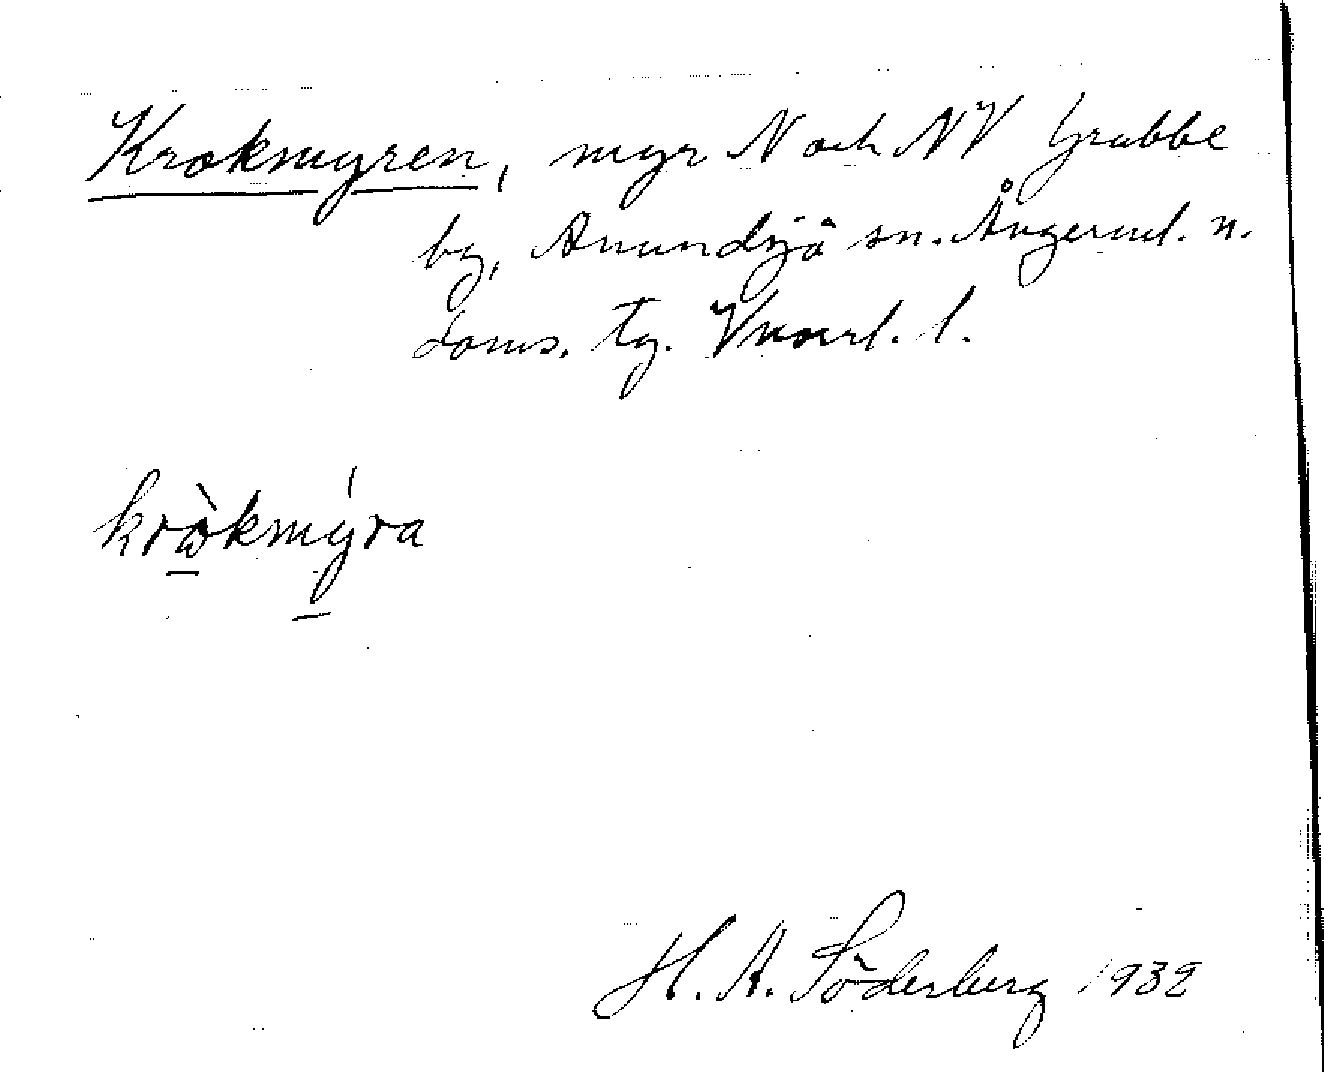 Krokmyren, myr N och NV Grubbe
by, Anundsjö sn. Ångerml. n.
doms. tg. Vnorl. l.
krὼkmýra
H. A. Söderberg 1932